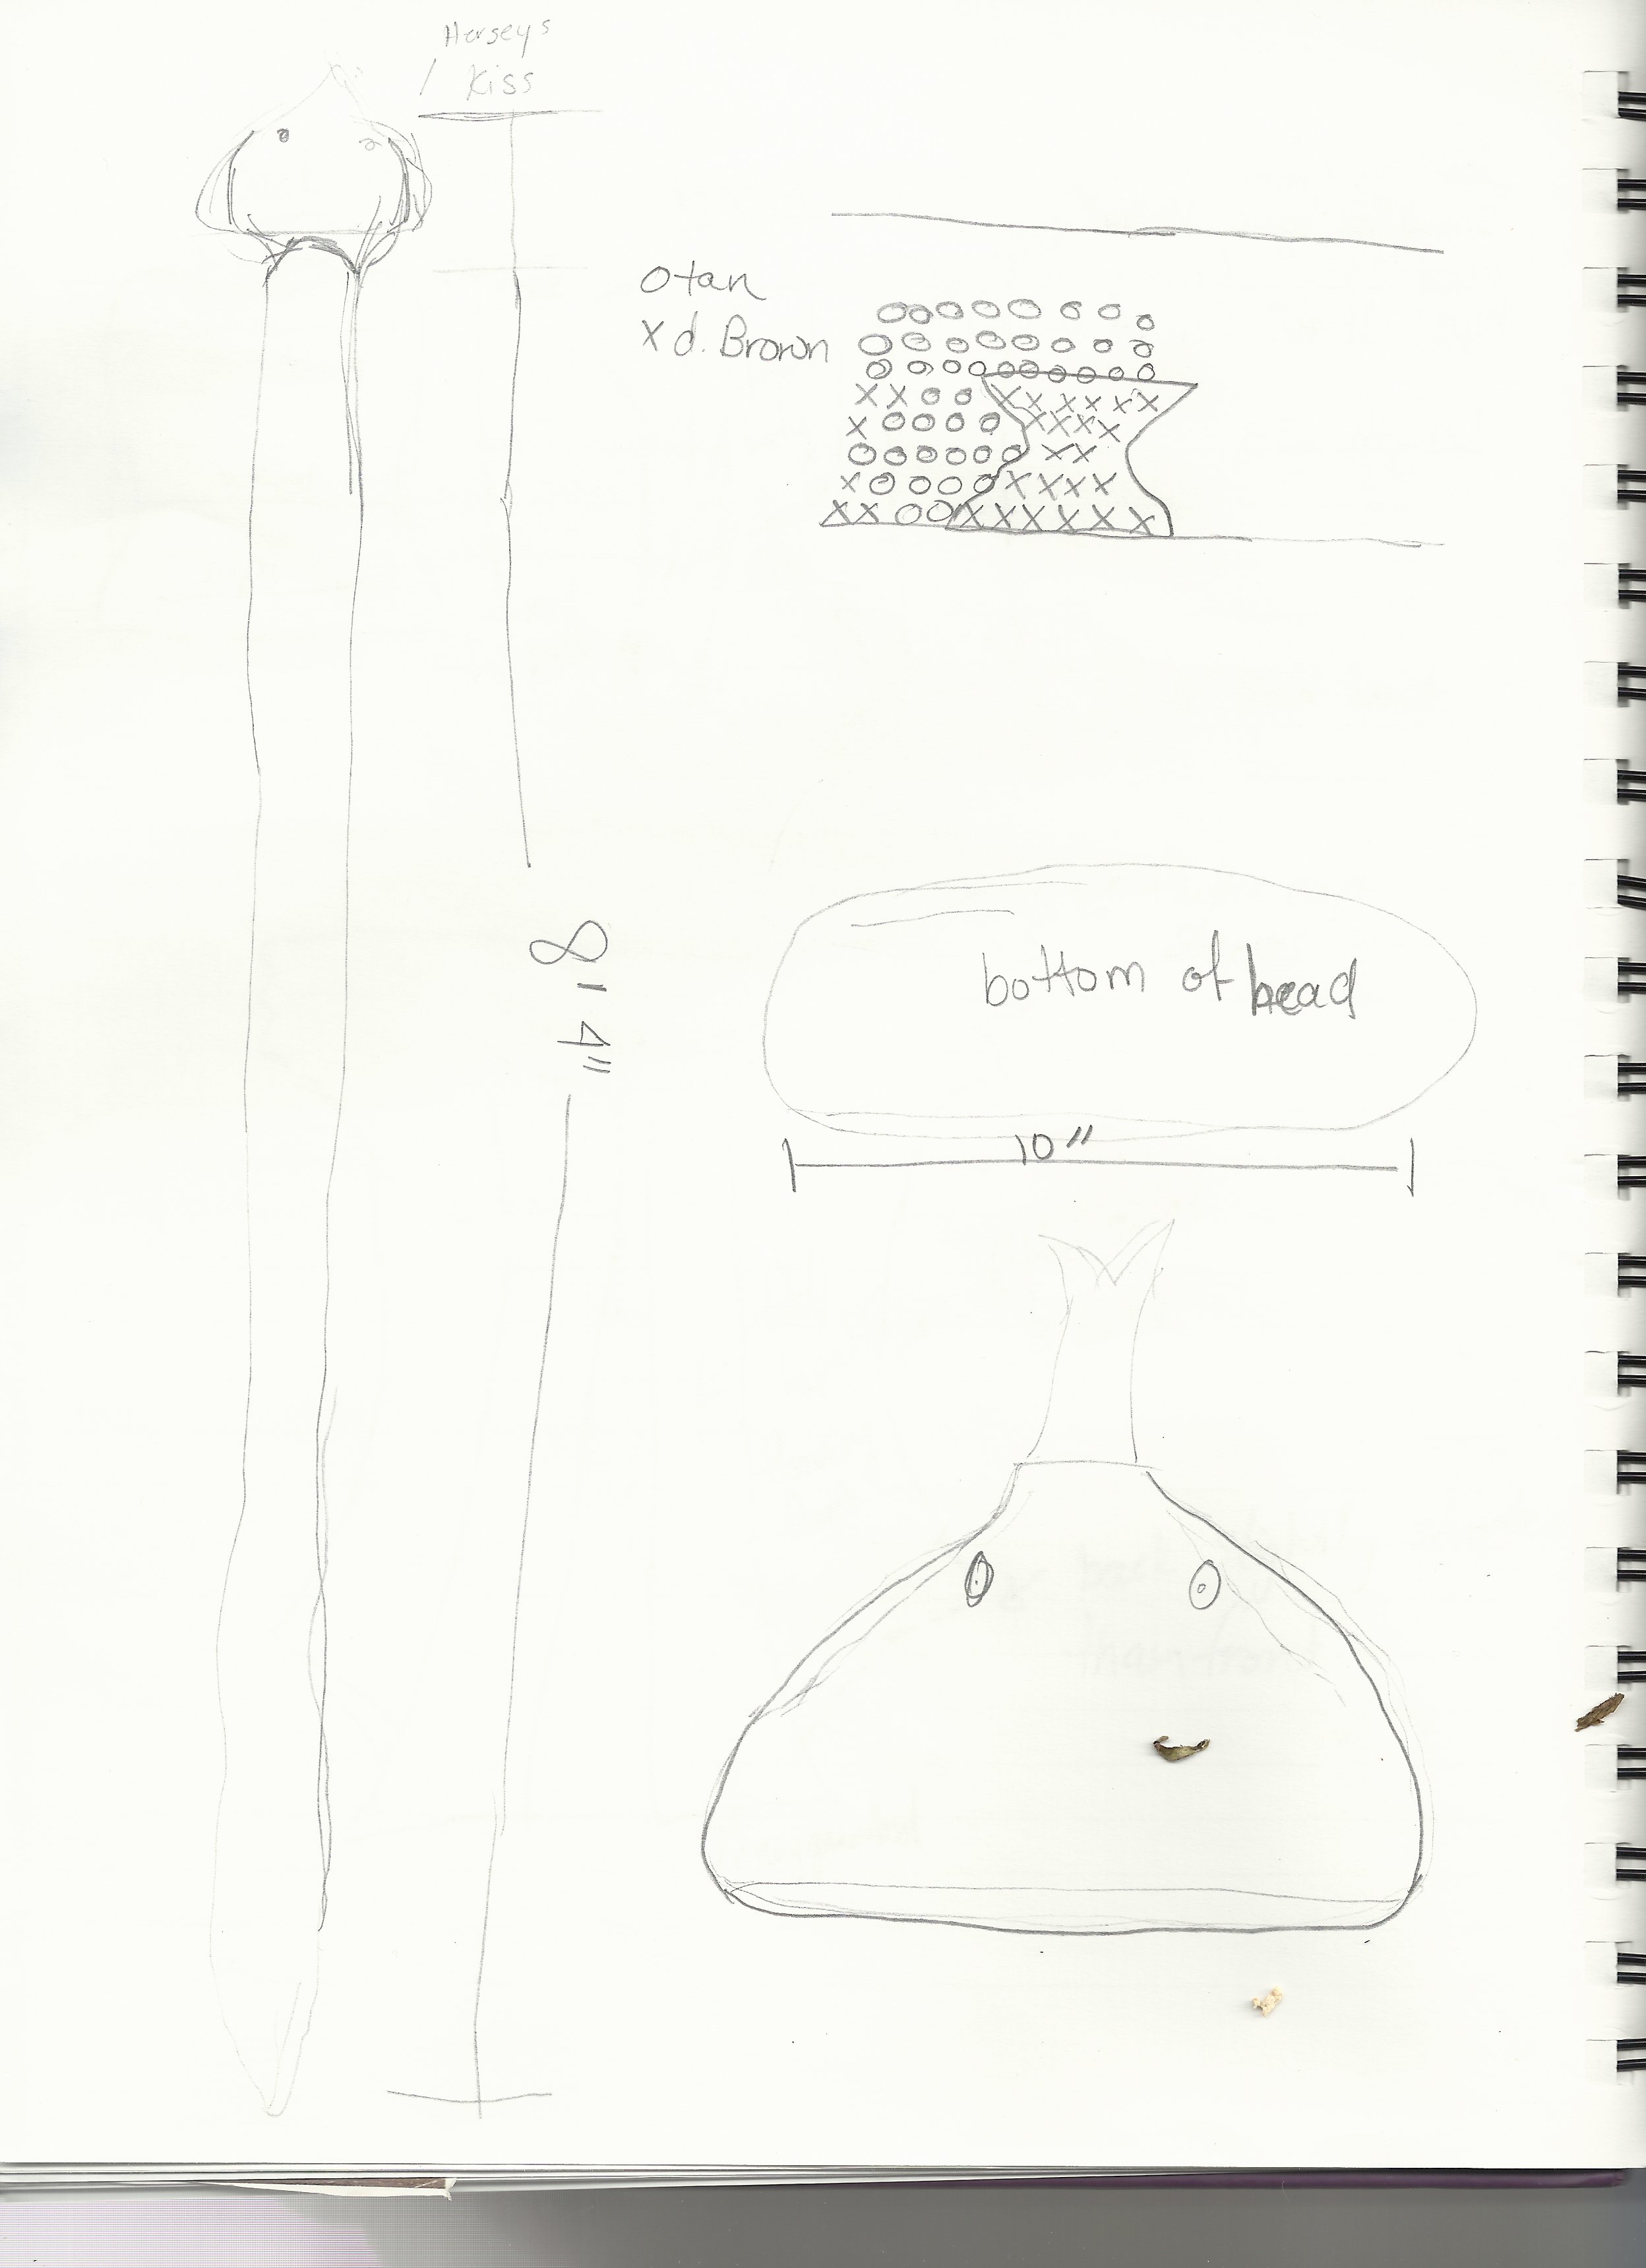 Herseys
/ Kiss
O tan
X d. Brown
O O O O O O O O
O O O O O O O O
O O O O O O O O O O
X X O O X X X X X X
X O O O O X X X X
O O O O O O X X
X O O O O X X X X
X X O O X X X X X X
8' 4"
bottom of head
10"